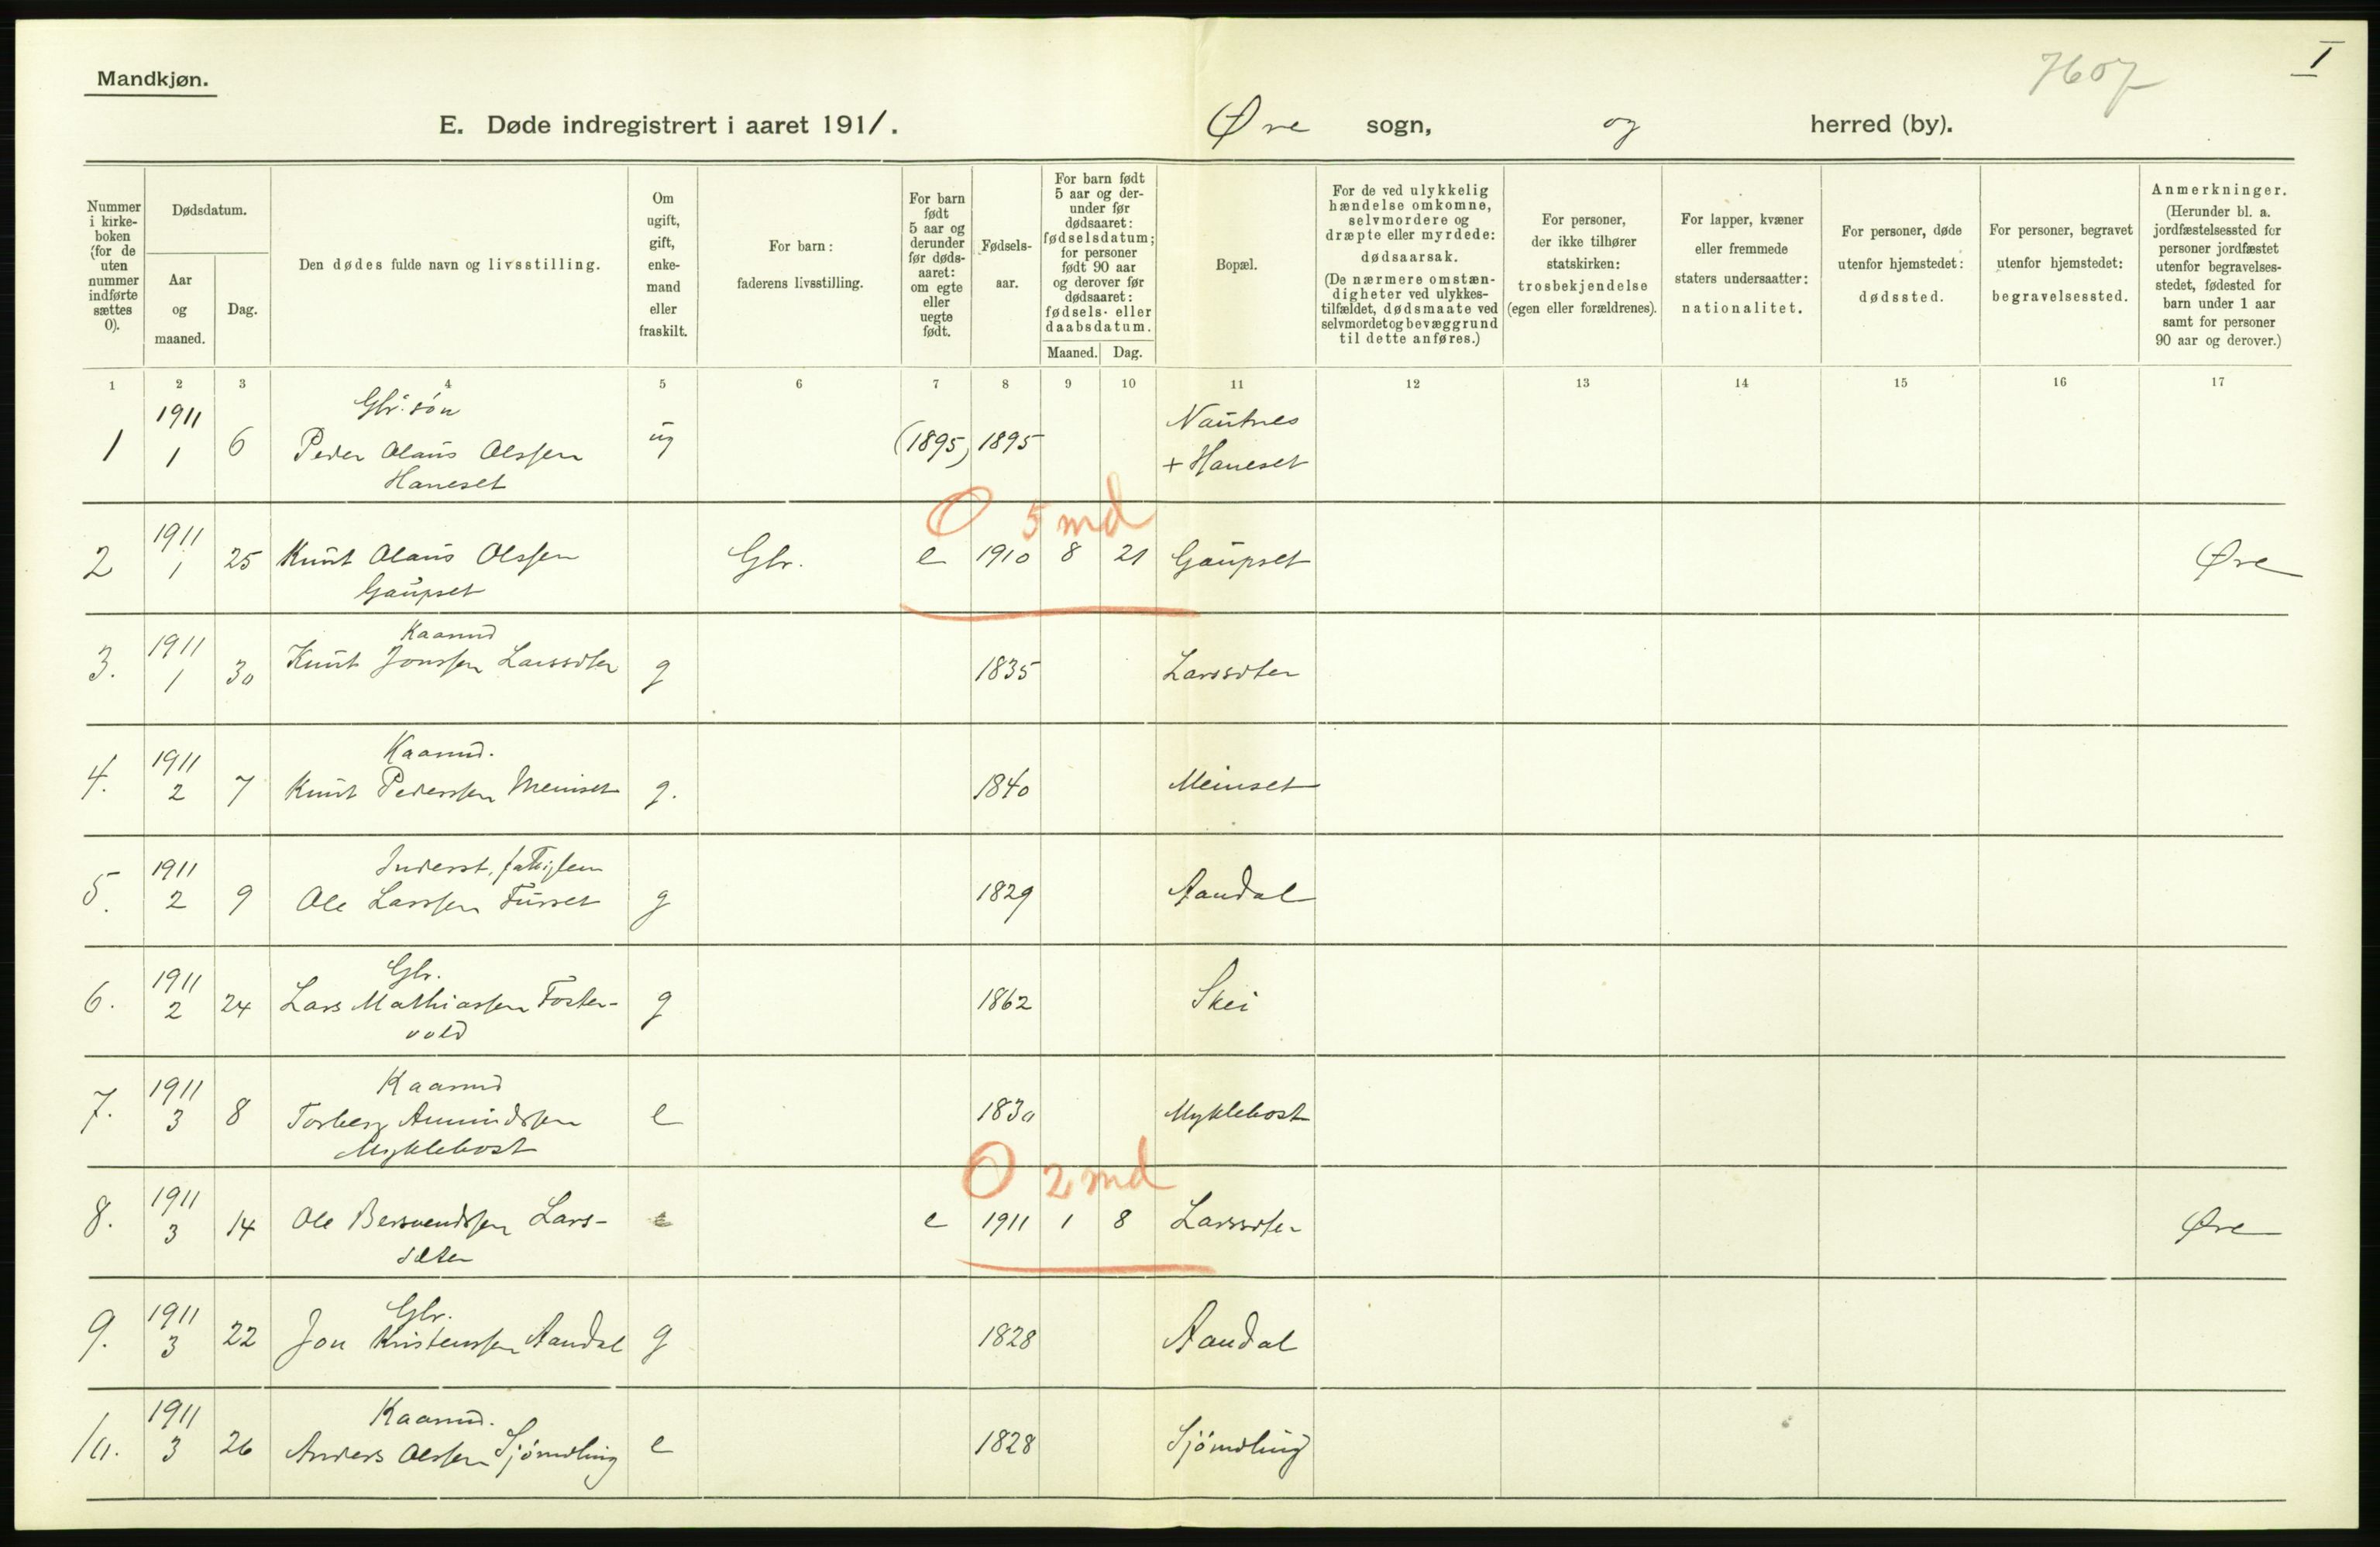 Mandkjøn.
7607
I
E. Døde indregistrert i aaret 1911. Øre sogn, og herred (by).
Nummer i kirke-boken (for de uten nummer indførte sættes 0).
Dødsdatum.
Aar og maaned.
Dag.
Den dødes fulde navn og livsstilling.
Om ugift, gift, enke-mand eller fraskilt.
For barn: faderens livsstilling.
For barn født 5 aar og derunder før døds-aaret: om egte eller uegte født.
Fødsels-aar.
For barn født 5 aar og der-under før dødsaaret: fødselsdatum; for personer født 90 aar og derover før dødsaaret: fødsels- eller daabsdatum.
Maaned. Dag.
Bopæl.
For de ved ulykkelig hændelse omkomne, selvmordere og dræpte eller myrdede: dødsaarsak. (De nærmere omstæn-digheter ved ulykkes-tilfældet, dødsmaate ved selvmordet og bevæggrund til dette anføres.)
For personer, der ikke tilhører statskirken: trosbekjendelse (egen eller forældrenes).
For lapper, kvæner eller fremmede staters undersaatter: nationalitet.
For personer, døde utenfor hjemstedet: dødssted.
For personer, begravet utenfor hjemstedet: begravelsessted.
Anmerkninger. (Herunder bl. a. jordfæstelsessted for personer jordfæstet utenfor begravelses-stedet, fødested for barn under 1 aar samt for personer 90 aar og derover.)
1 2 3 4 5 6 7 8 9 10 11 12 13 14 15 16 17
1911 Gbr. søn Nautnes
1 1 6 Peder Olaus Olssen ug (1895) 1895 + Haneset
Haneset
O 5 md
1911
2 1 25 Knut Olaus Olssen Gbr. e 1910 8 21 Gaupset Øre
Gaupset
1911 Kaarmd
3. 1 30 Knut Jonssen Larssæter g 1835 Larssæter
1911 Kaarmd.
4. 2 7 Knut Pederssen Meinset g. 1840 Meinset
1911 Inderst, fattiglem
5. 2 9 Ole Larssen Furset g 1829 Aandal
1911 Gbr.
6. 2 24 Lars Mathiassen Foster- g 1862 Skei
vold
1911 Kaarmd
7. 3 8 Torberg Amundssen e 1830 Myklebost
Myklebost
O 2 md
1911
8. 3 14 Ole Bersvendssen Lars- e e 1911 1 8 Larssæter Øre
sæter
1911 Gbr.
9. 3 22 Jon Kristenssen Aandal g 1828 Aandal
1911 Kaarmd.
10. 3 26 Anders Olssen Sjømdling e 1828 Sjømdling